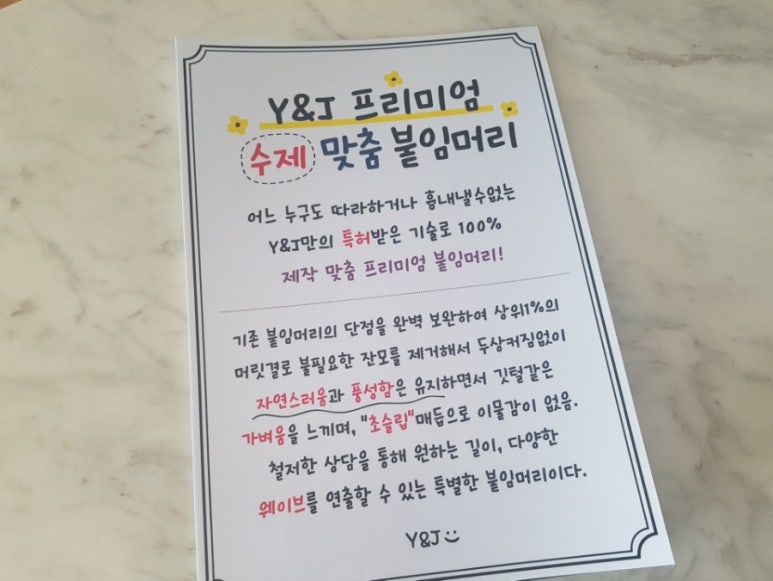 Y&J 프리미엄
수제 맞춤 붙임머리
어느 누구도 따라하거나 흉내낼수없는
Y&J만의 특허받은 기술로 100%
제작 맞춤 프리미엄 붙임머리!
기존 붙임머리의 단점을 완벽 보완하여 상위1%의
머릿결로 불필요한 잔모를 제거해서 두상커짐없이
자연스러움과 풍성함은 유지하면서 깃털같은
가벼움을 느끼며, "초슬립"매듭으로 이물감이 없음.
철저한 상담을 통해 원하는 길이, 다양한
웨이브를 연출할 수 있는 특별한 붙임머리이다.
Y&J